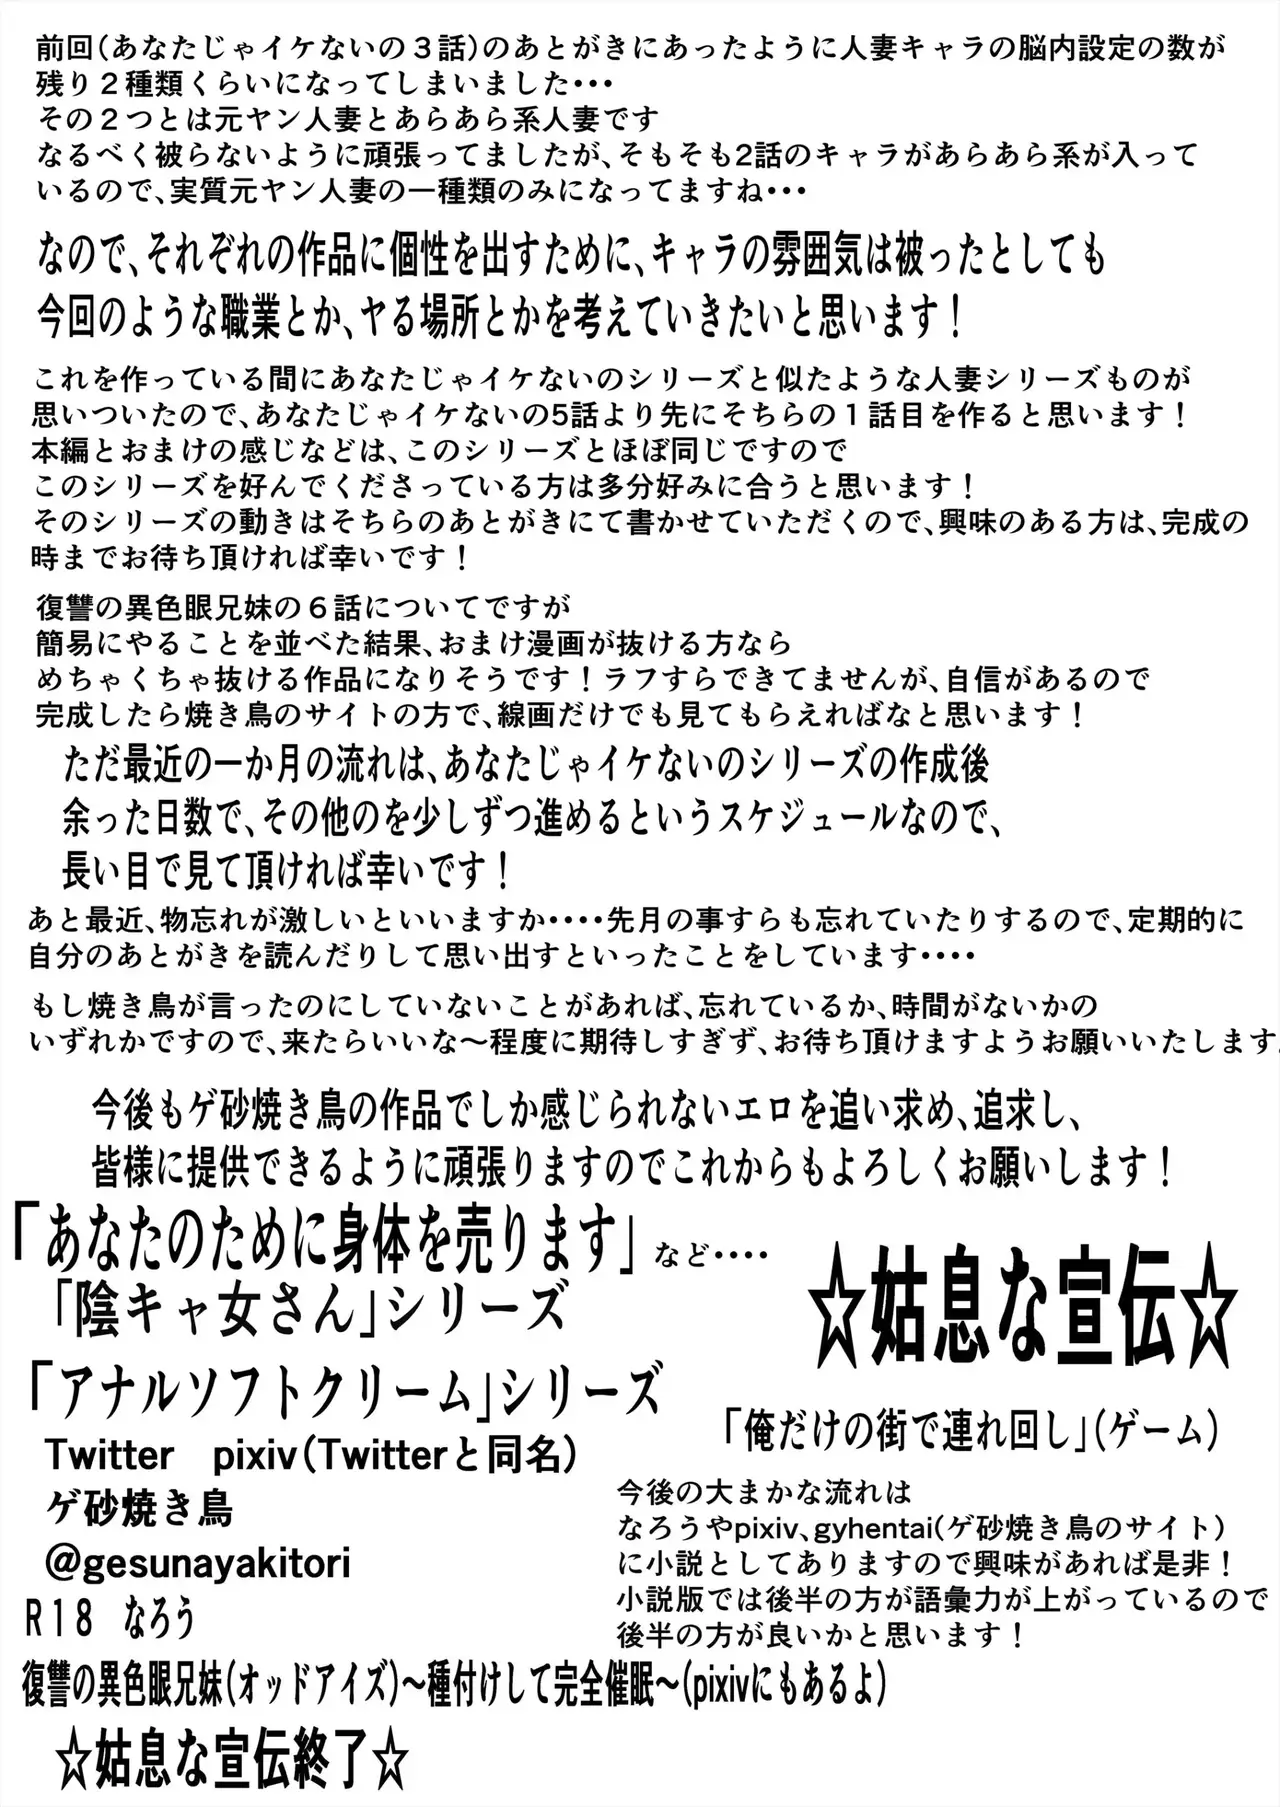 前回(あなたじゃイケないの３話)のあとがきにあったように人妻キャラの脳内設定の数が
残り２種類くらいになってしまいました・・・
その２つとは元ヤン人妻とあらあら系人妻です
なるべく被らないように頑張ってましたが、そもそも2話のキャラがあらあら系が入って
いるので、実質元ヤン人妻の一種類のみになってますね・・・
なので、それぞれの作品に個性を出すために、キャラの雰囲気は被ったとしても
今回のような職業とか、ヤる場所とかを考えていきたいと思います！
これを作っている間にあなたじゃイケないのシリーズと似たような人妻シリーズものが
思いついたので、あなたじゃイケないの5話より先にそちらの１話目を作ると思います！
本編とおまけの感じなどは、このシリーズとほぼ同じですので
このシリーズを好んでくださっている方は多分好みに合うと思います！
そのシリーズの動きはそちらのあとがきにて書かせていただくので、興味のある方は、完成の
時までお待ち頂ければ幸いです！
復讐の異色眼兄妹の６話についてですが
簡易にやることを並べた結果、おまけ漫画が抜ける方なら
めちゃくちゃ抜ける作品になりそうです！ラフすらできてませんが、自信があるので
完成したら焼き鳥のサイトの方で、線画だけでも見てもらえればなと思います！
ただ最近の一か月の流れは、あなたじゃイケないのシリーズの作成後
余った日数で、その他のを少しずつ進めるというスケジュールなので、
長い目で見て頂ければ幸いです！
あと最近、物忘れが激しいといいますか・・・・先月の事すらも忘れていたりするので、定期的に
自分のあとがきを読んだりして思い出すといったことをしています・・・・
もし焼き鳥が言ったのにしていないことがあれば、忘れているか、時間がないかの
いずれかですので、来たらいいな～程度に期待しすぎず、お待ち頂けますようお願いいたします。
今後もゲ砂焼き鳥の作品でしか感じられないエロを追い求め、追求し、
皆様に提供できるように頑張りますのでこれからもよろしくお願いします！
「あなたのために身体を売ります」など・・・・
「陰キャ女さん」シリーズ
「アナルソフトクリーム」シリーズ
Twitter　pixiv(Twitterと同名)
ゲ砂焼き鳥
@gesunayakitori
R18　なろう
復讐の異色眼兄妹(オッドアイズ)～種付けして完全催眠～(pixivにもあるよ)
☆姑息な宣伝終了☆
☆姑息な宣伝☆
「俺だけの街で連れ回し」(ゲーム)
今後の大まかな流れは
なろうやpixiv、gyhentai(ゲ砂焼き鳥のサイト)
に小説としてありますので興味があれば是非！
小説版では後半の方が語彙力が上がっているので
後半の方が良いかと思います！